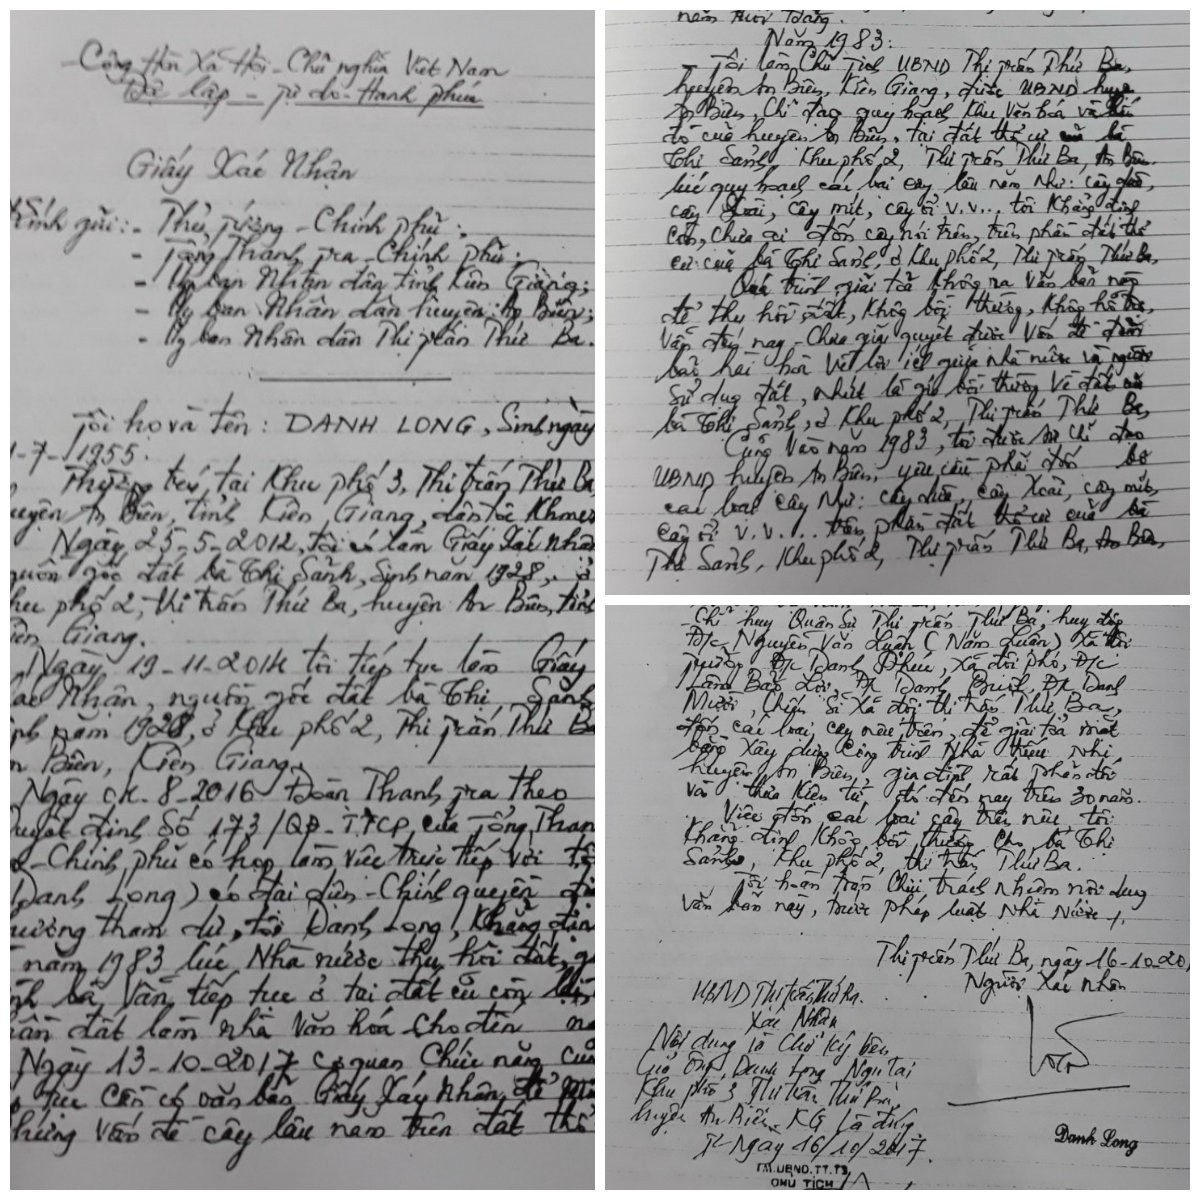 Cộng Hòa Xã Hội - Chủ nghĩa Việt Nam
Độc lập - Tự do - Hạnh phúc
Giấy Xác Nhận
Kính gửi: - Thủ tướng - Chính phủ;
- Tổng Thanh tra - Chính phủ;
- Ủy ban Nhân dân tỉnh Kiên Giang;
- Ủy ban Nhân dân huyện An Biên;
- Ủy ban Nhân dân Thị trấn Thứ Ba.
Tôi họ và tên: DANH LONG, Sinh ngày
1-7-1955.
Thường trú, tại Khu phố 3, Thị trấn Thứ Ba,
huyện An Biên, tỉnh Kiên Giang, dân tộc Khmer
Ngày 25-5-2012, tôi có làm Giấy Xác Nhận
nguồn gốc đất bà Thị Sảnh, Sinh năm 1928, ở
khu phố 2, Thị trấn Thứ Ba, huyện An Biên, tỉnh
Kiên Giang.
Ngày 19-11-2014 tôi tiếp tục làm Giấy
Xác Nhận, nguồn gốc đất bà Thị Sảnh
sinh năm 1928, ở Khu phố 2, Thị trấn Thứ Ba
An Biên, Kiên Giang.
Ngày 04-8-2016 Đoàn Thanh tra theo
Quyết định Số 173/QĐ-TTCP, của Tổng Thanh
tra - Chính phủ có họp làm việc trực tiếp với tôi
(Danh Long) có đại diện - Chính quyền địa
phương tham dự, tôi Danh Long, Khẳng định
năm 1983 lúc Nhà nước thu hồi đất, gia
đình bà, Vẫn tiếp tục ở tại đất cũ còn lại
phần đất làm nhà Văn hóa cho đến nay
Ngày 13-10-2017 cơ quan Chức năng của
tục cần có văn bản Giấy Xác Nhận, để
những vấn đề cây lâu năm trên đất thổ
Năm 1983:
Tôi làm Chủ Tịch UBND Thị trấn Thứ Ba,
huyện An Biên, Kiên Giang, được UBND huyện
An Biên, Chỉ đạo quy hoạch Khu Văn hóa và
đó của huyện An Biên, tại đất thổ cư của bà
Thị Sảnh, Khu phố 2, Thị trấn Thứ Ba, An Biên.
lúc quy hoạch các loại cây lâu năm như: cây dừa,
cây Xoài, cây mít, cây ổi v.v... tôi Khẳng định
còn, chưa ai đốn cây nói trên, trên phần đất thổ
cư của bà Thị Sảnh, ở Khu phố 2, Thị trấn Thứ Ba,
Quá trình, giải tỏa không ra văn bản nào
để thu hồi đất, Không bồi thường, Không hỗ trợ,
Vẫn đến nay - Chưa giải quyết được vấn đề đảm
bảo hài hòa Về lợi ích giữa nhà nước và người
Sử dụng đất, nhứt là giá bồi thường về đất
bà Thị Sảnh, ở Khu phố 2, Thị trấn Thứ Ba,
Cũng Vào năm 1983, tôi được sự Chỉ đạo
UBND huyện An Biên, yêu cầu phải đốn bỏ
các loại cây như: cây dừa, cây Xoài, cây mít,
cây ổi v.v.... trên phần đất thổ cư của bà
Thị Sảnh, Khu phố 2, Thị trấn Thứ Ba, An Biên,
Chỉ huy Quân Sự Thị trấn Thứ Ba, huy động
Đ/c Nguyễn Văn Luận (Năm Luân) Xã đội
trưởng Đ/c Danh Phục, Xã đội phó, Đ/c
Lâm Bảo Lợi, Đ/c Danh Đ/c Danh
Mười, Chiến Sĩ Xã đội thị trấn Thứ Ba,
đốn các loại cây nêu trên, để giải tỏa mặt
bằng xây dựng Công trình Nhà thiếu nhi
huyện An Biên, gia đình rất phản đối
và thưa Kiện từ đó đến nay trên 30 năm.
Việc đốn các loại cây trên nêu tôi
Khẳng định Không bồi thường cho bà Thị
Sảnh, Khu phố 2, thị trấn Thứ Ba.
Tôi hoàn toàn Chịu trách nhiệm nội dung
văn bản này, trước pháp luật Nhà Nước./.
Thị trấn Thứ Ba, ngày 16-10-20
Người Xác nhận
UBND Thị trấn Thứ Ba.
Xác Nhận
Nội dung là Chữ ký bên
Của Ông Danh Long Ngụ tại
Khu phố 3 Thị trấn Thứ Ba
huyện An Biên, KG là đúng
Ngày 16/10/2017.
TM.UBND.TT.T3
CHỦ TỊCH
Danh Long